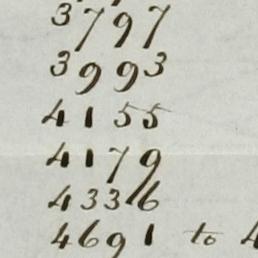 3797
3993
4155
4179
4336
4691 to 4